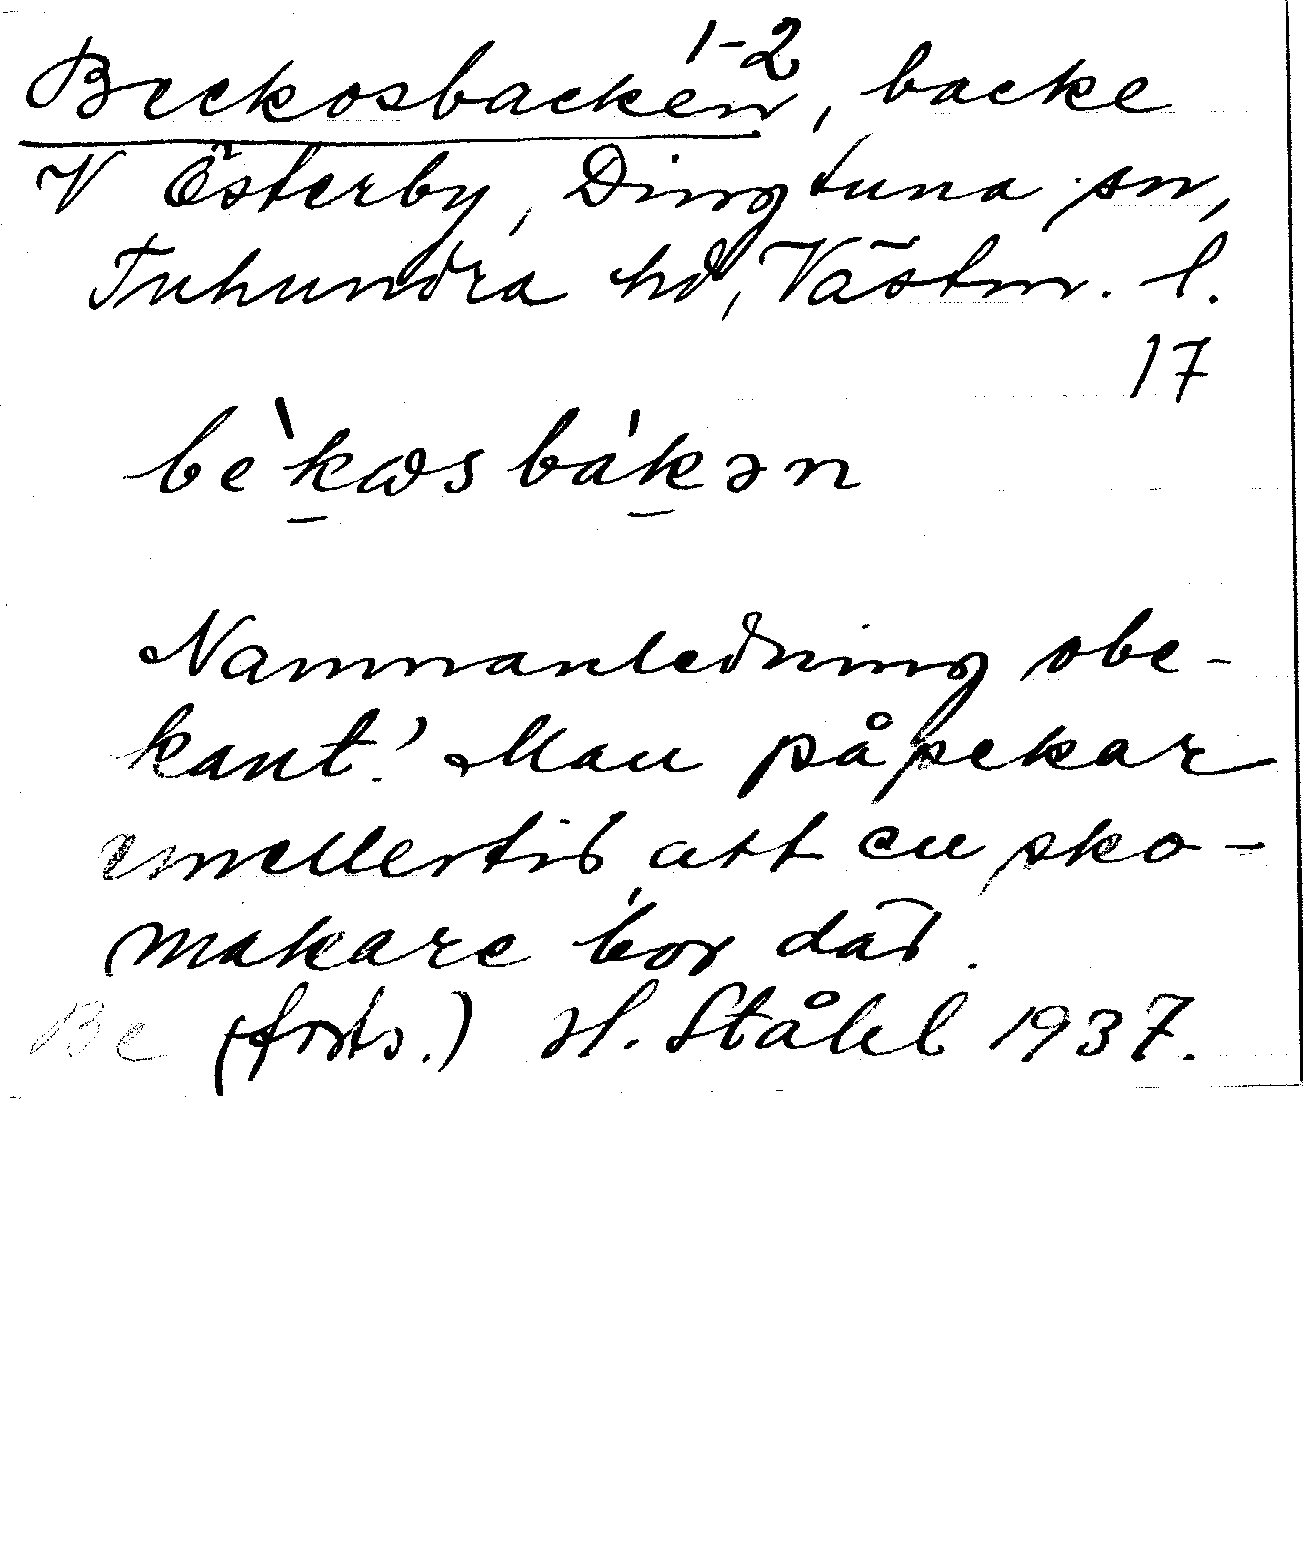 1-2
Beckosbacken, backe
V Österby, Dingtuna sn,
Tuhundra hd, Västm. l.
17
be`kωsba´kən
Namnanledning obe-
kant! Man påpekar
emellertid, att en sko-
makare bor där.
Be (forts.) H. Ståhl 1937.